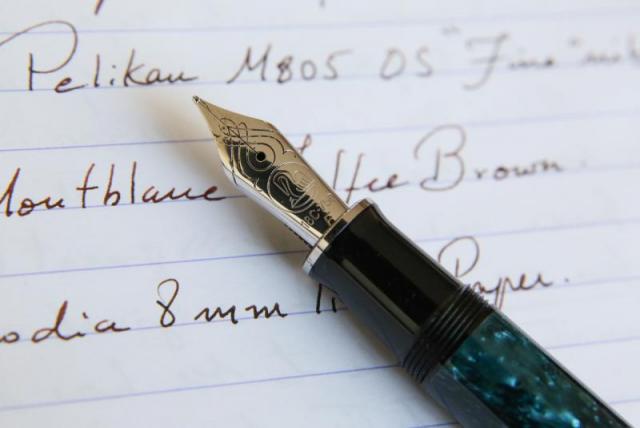 Pelikan M805 OS "Fine" nib
Montblanc Toffee Brown.
Rhodia 8 mm Paper.